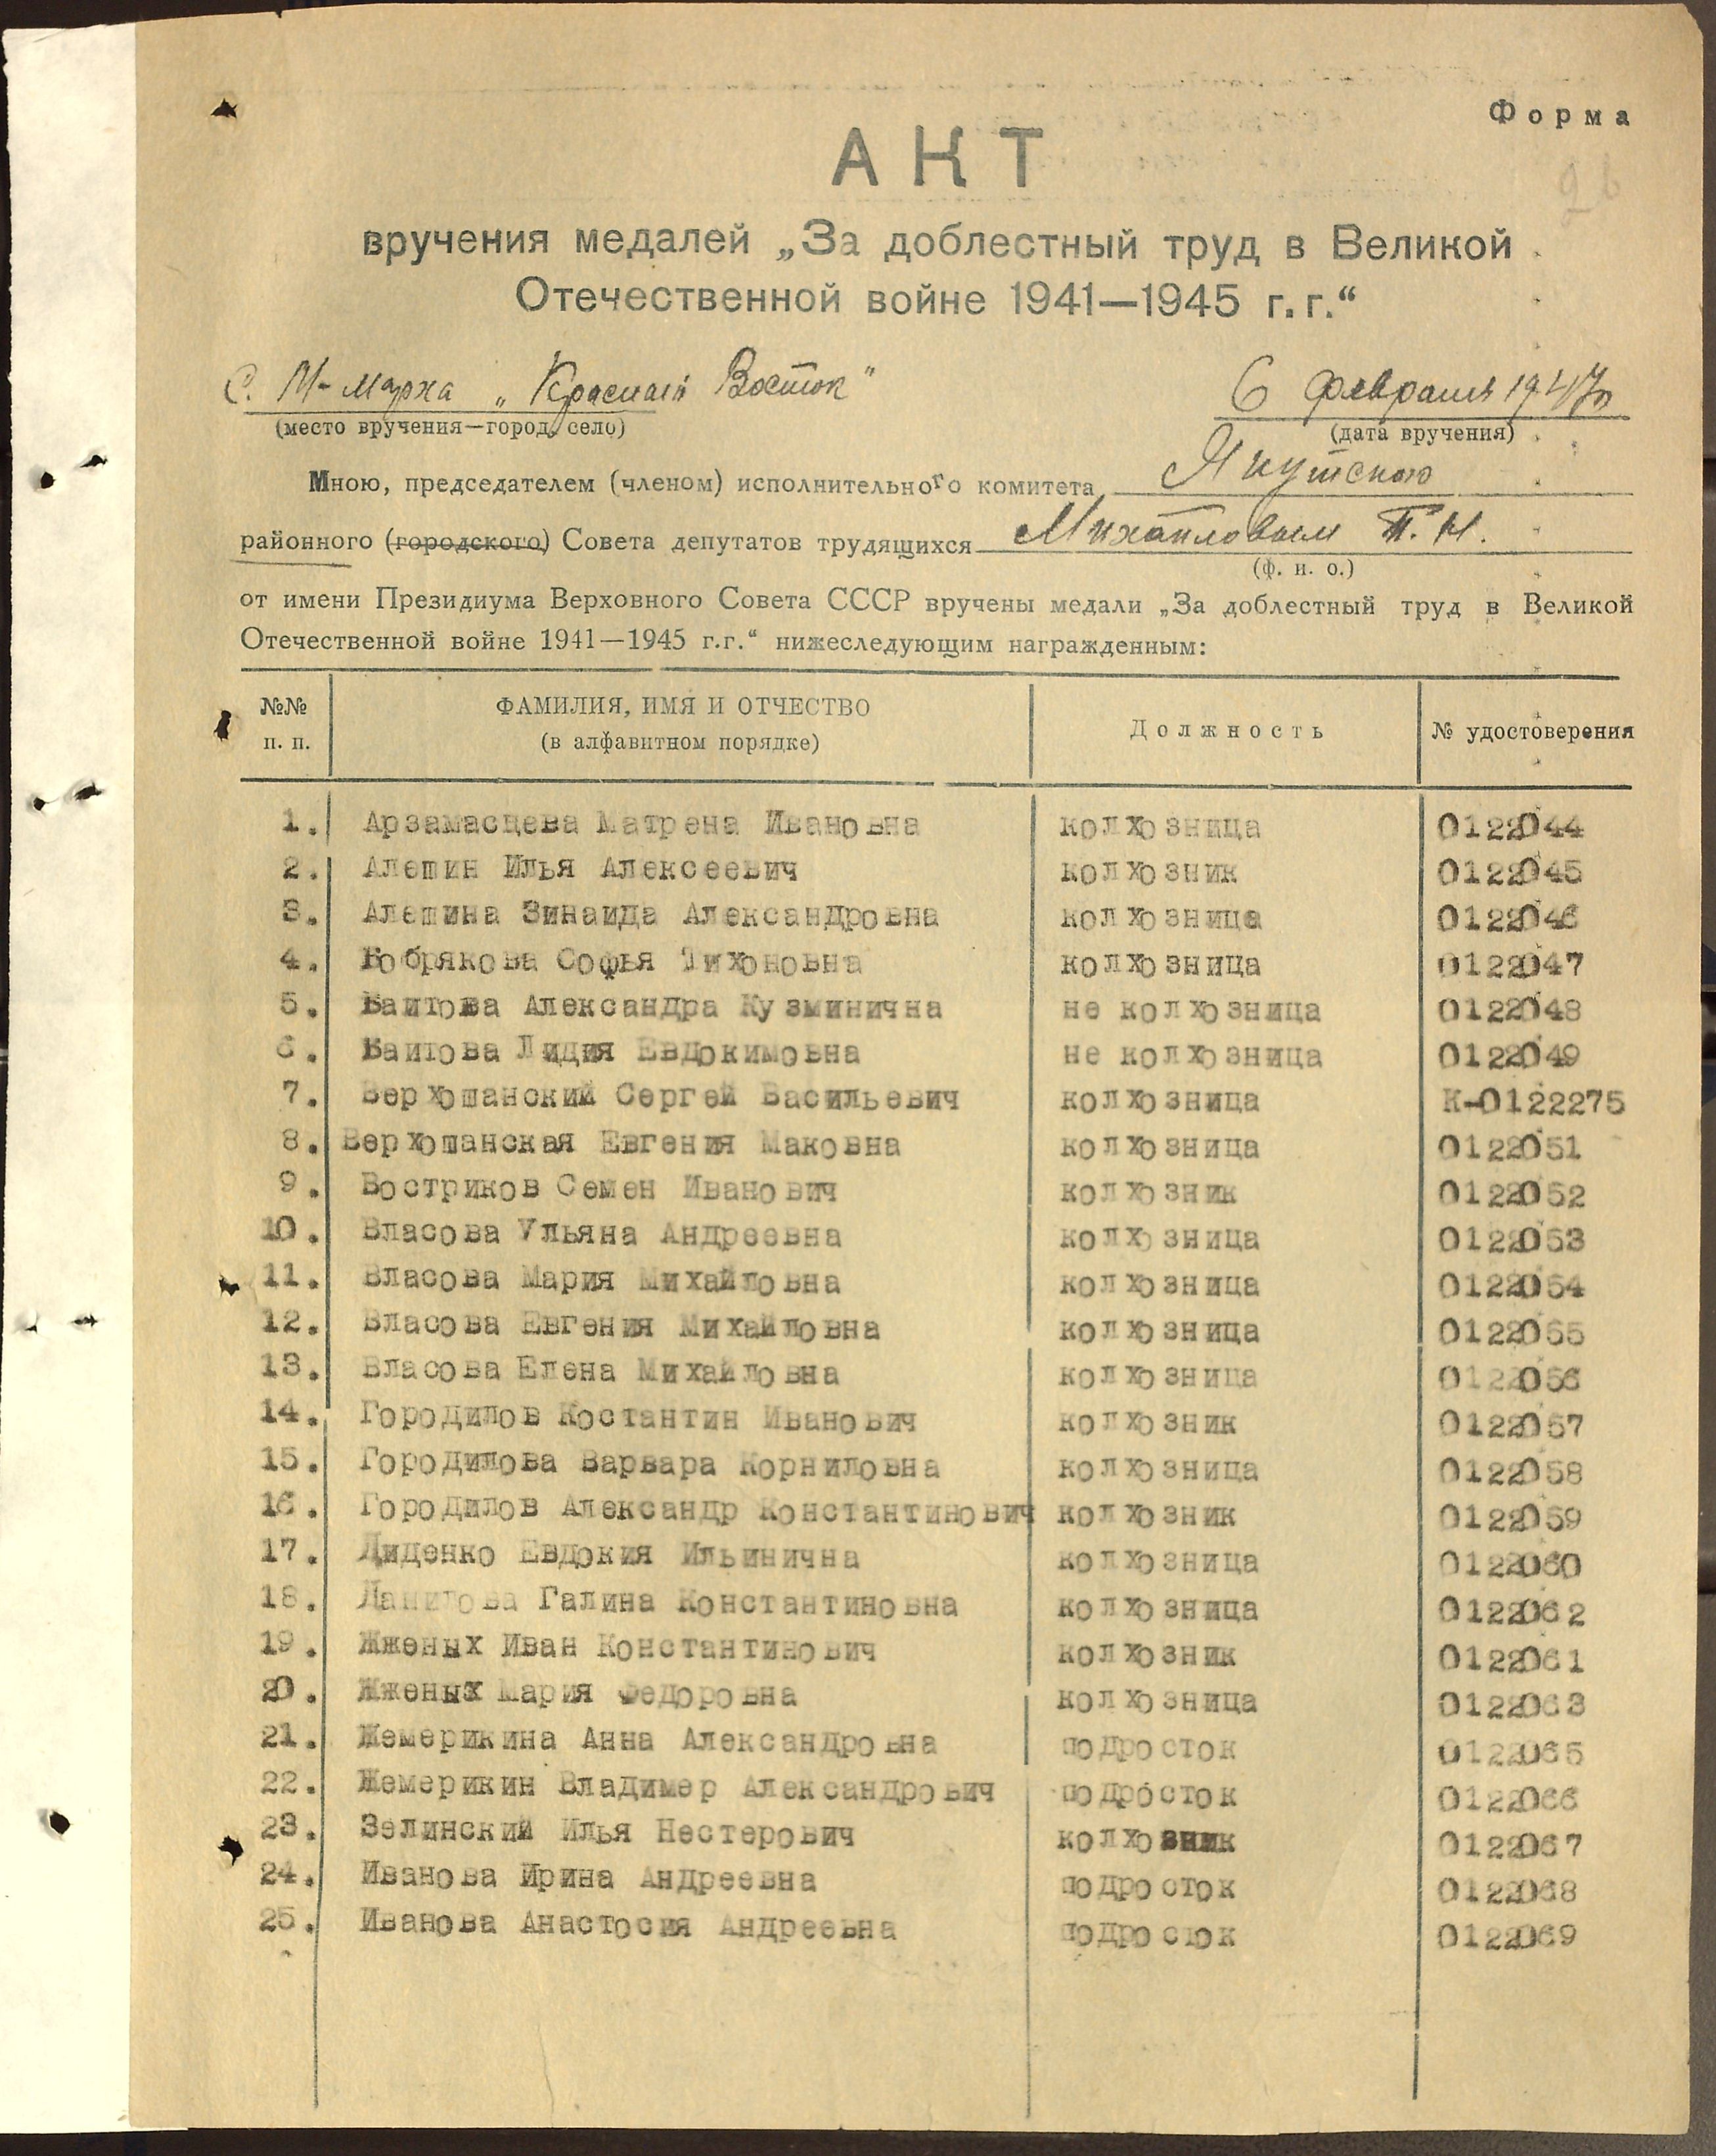 Форма
26
АКТ
вручения медалей „За доблестный труд в Великой
Отечественной войне 1941—1945 г.г.“
С. М-Марха „Красный Восток"
6 февраля 1947г
(место вручения—город, село)
(дата вручения)
Мною, председателем (членом) исполнительного комитета Якутского
районного (городского) Совета депутатов трудящихся Михайловым П. Н.
(ф. и. о.)
от имени Президиума Верховного Совета СССР вручены медали „За доблестный труд в Великой
Отечественной войне 1941—1945 г.г.“ нижеследующим награжденным:
№№ п. п. ФАМИЛИЯ, ИМЯ И ОТЧЕСТВО (в алфавитном порядке) Должность № удостоверения
1. Арзамасцева Матрена Ивановна колхозница 0122044
2. Алешин Илья Алексеевич колхозник 0122045
3. Алешина Зинаида Александровна колхозница 0122046
4. Бобрякова Софья Тихоновна колхозница 0122047
5. Ваитова Александра Кузминична не колхозница 0122048
6. Ваитова Лидия Евдокимовна не колхозница 0122049
7. Верхошанский Сергей Васильевич колхозница К-0122275
8. Верхошанская Евгения Маковна колхозница 0122051
9. Востриков Семен Иванович колхозник 0122052
10. Власова Ульяна Андреевна колхозница 0122053
11. Власова Мария Михайловна колхозница 0122054
12. Власова Евгения Михайловна колхозница 0122055
13. Власова Елена Михайловна колхозница 0122056
14. Городилов Костантин Иванович колхозник 0122057
15. Городилова Варвара Корниловна колхозница 0122058
16. Городилов Александр Константинович колхозник 0122059
17. Диденко Евдокия Ильинична колхозница 0122060
18. Данилова Галина Константиновна колхозница 0122062
19. Жженых Иван Константинович колхозник 0122061
20. Жженых Мария Федоровна колхозница 0122063
21. Жемерикина Анна Александровна подросток 0122065
22. Жемерикин Владимер Александрович подросток 0122066
23. Зелинский Илья Нестерович колхозник 0122067
24. Иванова Ирина Андреевна подросток 0122068
25. Иванова Анастосия Андреевна подросток 0122069